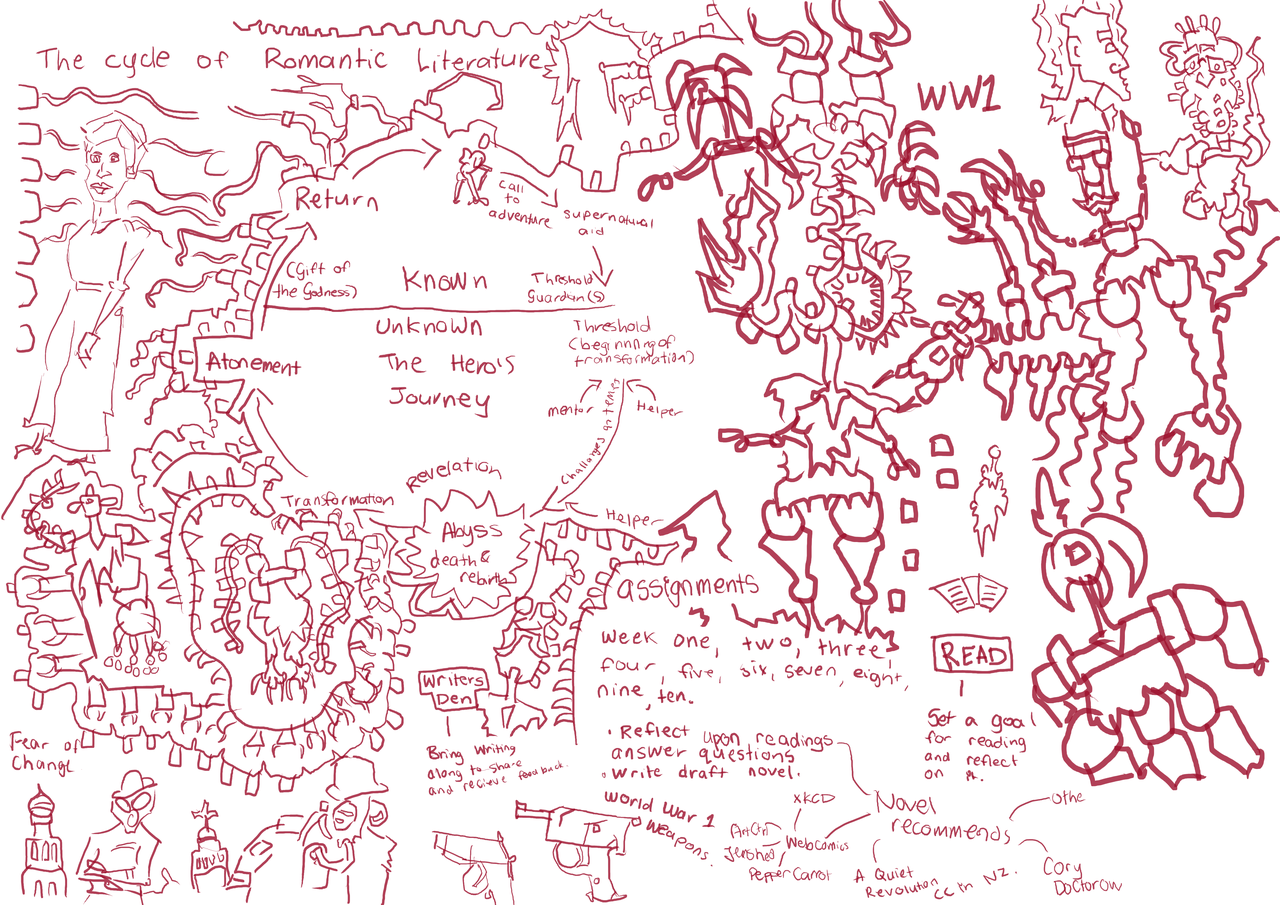 The cycle of Romantic Literature
WW1
Return
Call
to
adventure
supernatural
aid
(Gift of
the Godness)
Known
Threshold
Guardian(s)
Unknown
The Hero's
Journey
Threshold
(beginning of
transformation)
Atonement
mentor
Helper
Revelation
Transformation
Abyss
death &
rebirth
Helper
assignments
week one, two, three,
four, five, six, seven, eight,
nine, ten.
• Reflect upon readings
answer questions
• Write draft novel.
READ
Set a goal
for reading
and reflect
on it.
Writers
Den
Bring Writing
along to share
and recieve feedback.
Fear of
Change
World War 1
Weapons.
XKCD
Webcomics
Pepper Carrot
Novel
recommends
Othe
A Quiet
Revolution
CC in NZ.
Cory
Doctorow